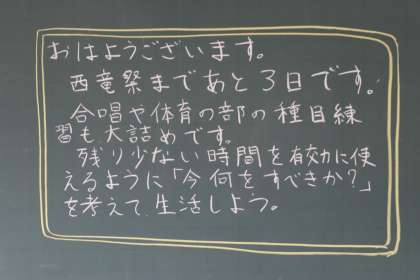 おはようございます。
西竜祭まであと3日です。
合唱や体育の部の種目練
習も大詰めです。
残り少ない時間を有効に使
えるように「今何をすべきか?」
を考えて生活しよう。